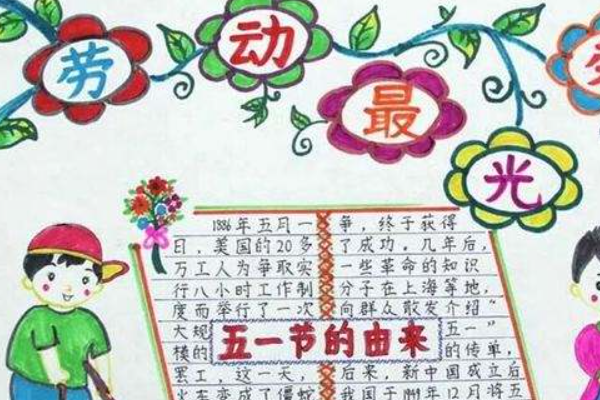 劳
动
最
光
1886年五月一
日，美国的20多
万工人为争取实
行八小时工作制
度而举行了一次
大规
模的
罢工，这一天，
火车变成了僵蛇
五一节的由来
争，终于获得
了成功。几年后，
一些革命的知识
分子在上海等地，
向群众散发介绍“
五一”
的传单，
后来，新中国成立后
我国于1949年12月将五